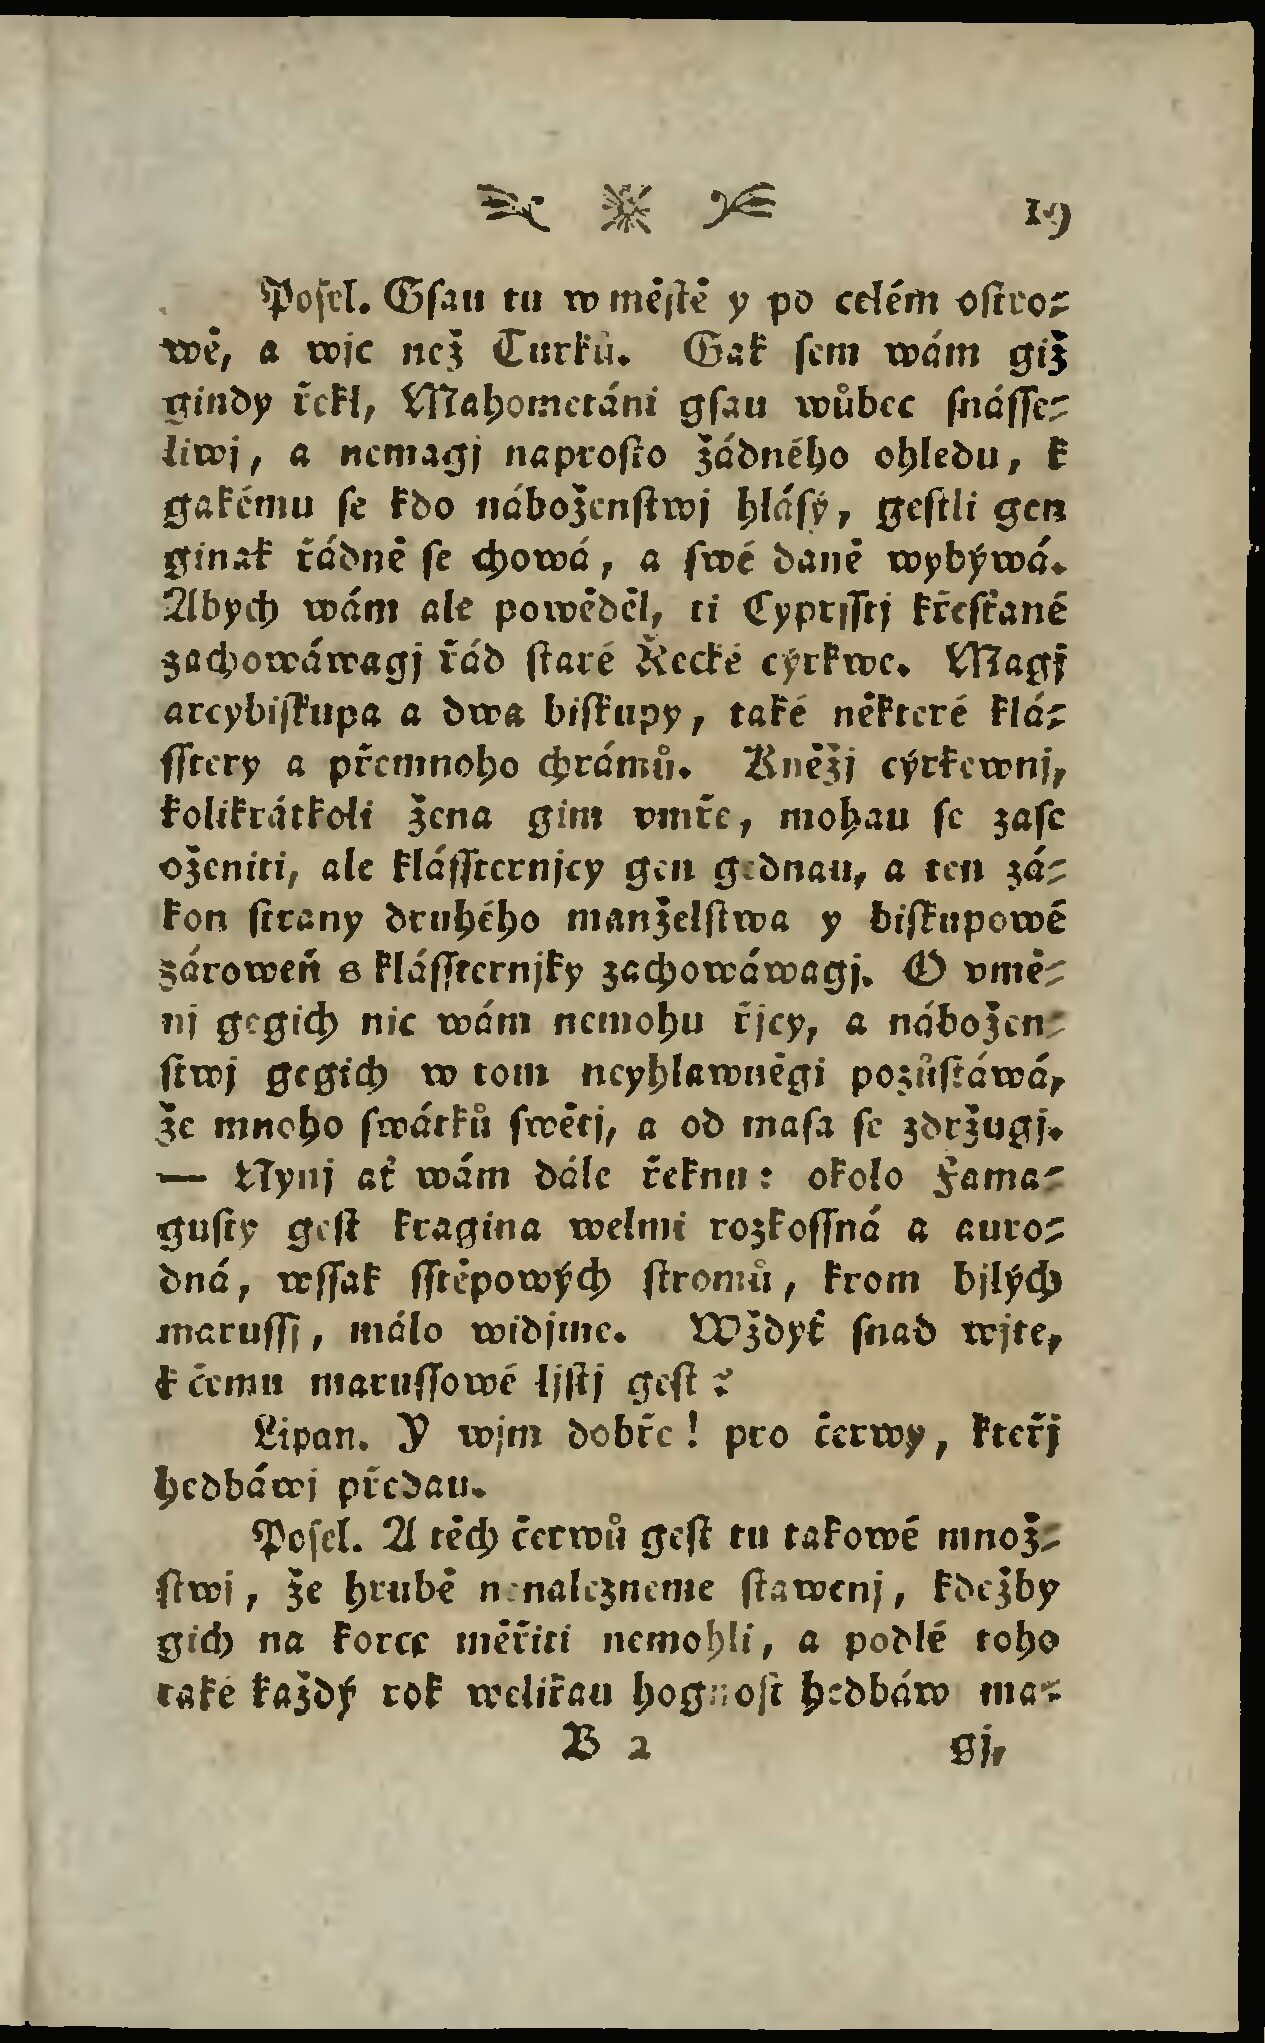 19
Posel. Gsau tu w městě y po celém ostro-
wě, a wjc než Turků. Gak sem wám giž
gindy řekl, Mahometáni gsau wůbec snásse-
liwj, a nemagj naprosto žádného ohledu, k
gakému se kdo náboženstwj hlásý, gestli gen
ginak řádně se chowá, a swé daně wybýwá.
Abych wám ale powěděl, ti Cyprsstj křesťané
zachowáwagj řád staré Řecké cýrkwe. Magj
arcybiskupa a dwa biskupy, také některé klá-
sstery a přemnoho chrámů. Kněžj cýrkewnj,
kolikrátkoli žena gim vmře, mohau se zase
oženiti, ale klássternjcy gen gednau, a ten zá-
kon strany druhého manželstwa y biskupowé
zároweň s klássternjky zachowáwagj. O vmě-
nj gegich nic wám nemohu řjcy, a nábožen-
stwj gegich w tom neyhlawněgi pozůstáwá,
že mnoho swátků swětj, a od masa se zdržugj.
— Nynj ať wám dále řeknu: okolo Fama-
gusty gest kragina welmi rozkossná a auro-
dná, wssak sstěpowých stromů, krom bjlých
marussj, málo widjme. Wždyť snad wjte,
k čemu marussowé ljstj gest?
Lipan. Y wjm dobře! pro červy, kteřj
hedbáwj předau.
Posel. A těch čerwů gest tu takowé množ-
stwj, že hrubě nenalezneme stawenj, kdežby
gich na korce měřiti nemohli, a podlé toho
také každý rok welikau hognost hedbáw ma-
B 2 gj,